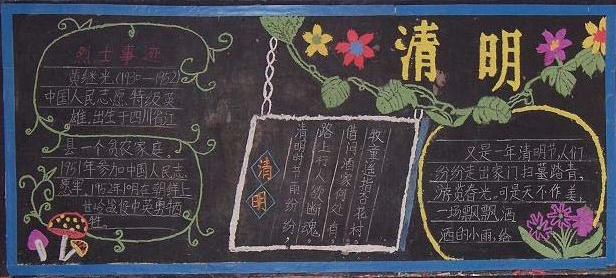 清明
烈士事迹
黄继光(1930—1952)
中国人民志愿.特级英
雄.出生于四川省江
县一个贫农家庭。
1951年参加中国人民志
愿军。1952年10月在朝鲜上
甘岭战役中英勇牺
牲
清明
清明时节雨纷纷，
路上行人欲断魂。
借问酒家何处有?
牧童遥指杏花村。
又是一年清明节人们
纷纷走出家门扫墓踏青，
游览春光。可是天不作美，
一场飘飘洒
洒的小雨，给